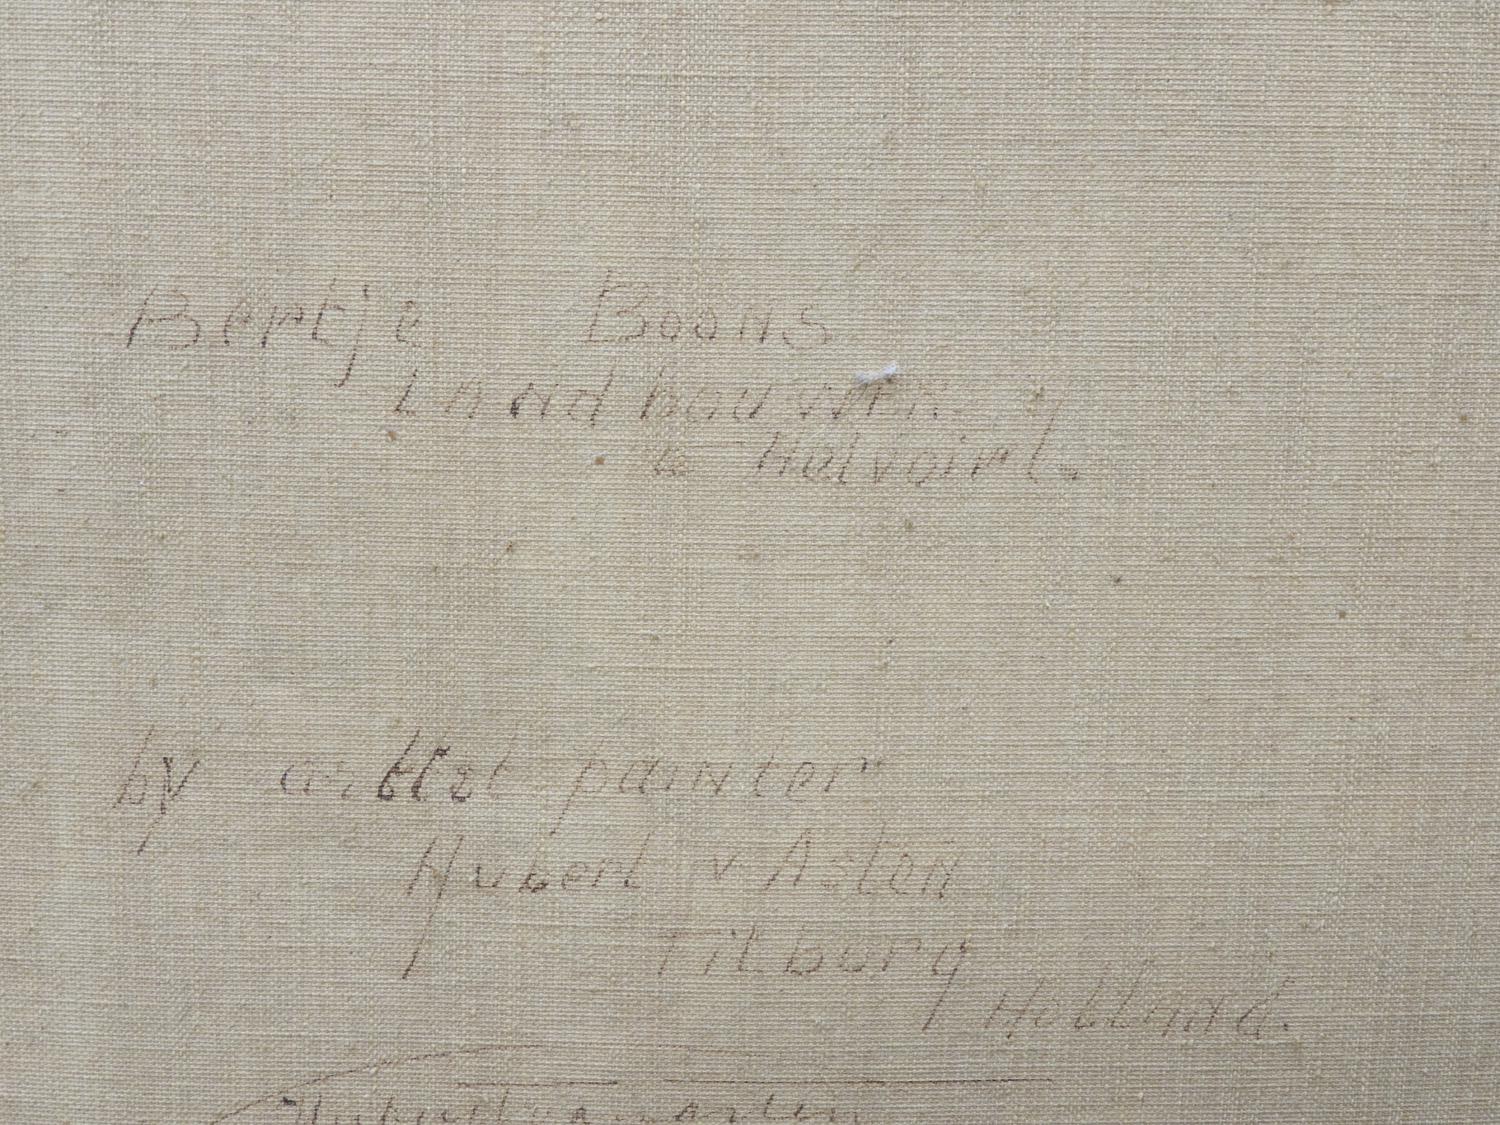 Bertje Boons
Landbouwer
te Helvoirt.
by artist painter
Hubert v Asten
Tilburg
Holland.
Hubert van asten